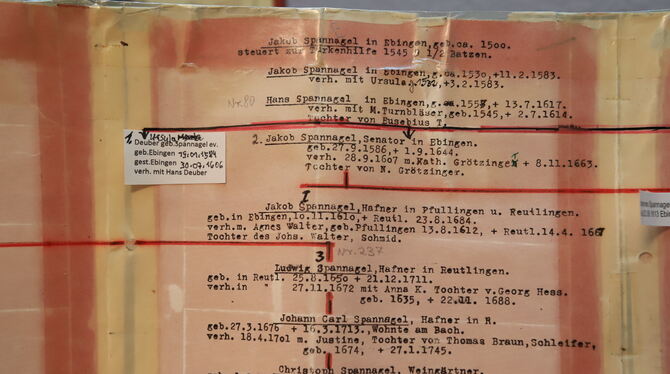 Jakob Spannagel in Ebingen,geb.ca. 1500.
steuert zur Türkenhilfe 1545 0 1/2 Batzen.
Jakob Spannagel in Ebingen,g.ca.1530,+11.2.1583.
verh. mit Ursula, +3.2.1583.
Nr.80
Hans Spannagel in Ebingen, + 13.7.1617.
verh. mit M.Turnbläser,geb.1545,+ 2.7.1614.
Tochter von Eusebius T.
1.
Deuber geb.Spannagel ev.
geb.Ebingen 15.01.1584
gest.Ebingen 30.07.1606
verh. mit Hans Deuber
2. Jakob Spannagel,Senator in Ebingen.
geb.27.9.1586,+ 1.9.1644.
verh. 28.9.1607 m.Kath. Grötzinger + 8.11.1663.
Tochter von N. Grötzinger.
I
Jakob Spannagel,Hafner in Pfullingen u. Reutlingen.
geb.in Ebingen,10.11.1610,+ Reutl. 23.8.1684.
verh.m. Agnes Walter,geb.Pfullingen 13.8.1612, + Reutl.14.4. 1667
Tochter des Johs. Walter, Schmid.
3 Nr.237
Ludwig Spannagel,Hafner in Reutlingen.
geb. in Reutl. 25.8.1650 + 21.12.1711.
verh.in " 27.11.1672 mit Anna K. Tochter v.Georg Hess.
geb. 1635, + 22.11. 1688.
Johann Carl Spannagel, Hafner in R.
geb.27.3.1676 + 16.3.1713.,Wohnte am Bach.
verh. 18.4.1701 m. Justine, Tochter von Thomas Braun,Schleifer,
geb. 1674, + 27.1.1745.
Christoph Spannagel, Weingärtner.